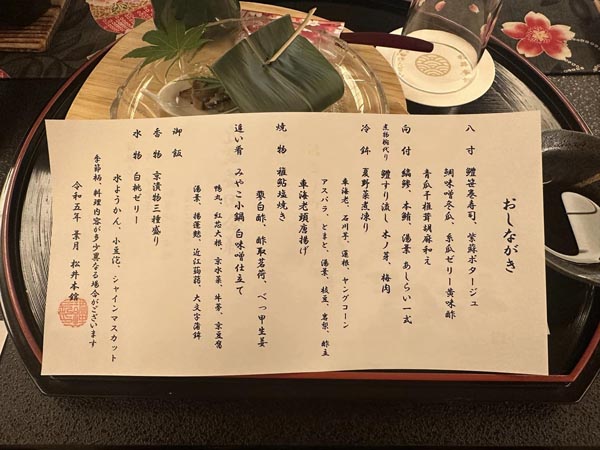 おしながき
八寸 鱧笹巻寿司、紫蘇ポタージュ
鯛味噌冬瓜、糸瓜ゼリー黄味酢
青瓜干椎茸胡麻和え
向付 縞鯵、本鮪、湯葉 あしらい一式
煮物椀代り 鱧すり流し、木ノ芽、梅肉
冷鉢 夏野菜煮凍り
車海老、石川芋、蓮根、ヤングコーン
アスパラ、とまと、湯葉、枝豆、岩梨、酢立
車海老頭唐揚げ
焼物 稚鮎塩焼き
蓼白酢、酢取茗荷、べっ甲生姜
追い肴 みやこ小鍋 白味噌仕立て
鴨丸、紅芯大根、京水菜、牛蒡、京豆腐
湯葉、揚蓬麩、近江蒟蒻、大文字蒲鉾
御飯
香物 京漬物三種盛り
水物 白桃ゼリー
水ようかん、小豆泡、シャインマスカット
季節柄、料理内容が多少異なる場合がございます
令和五年 葉月 松井本館